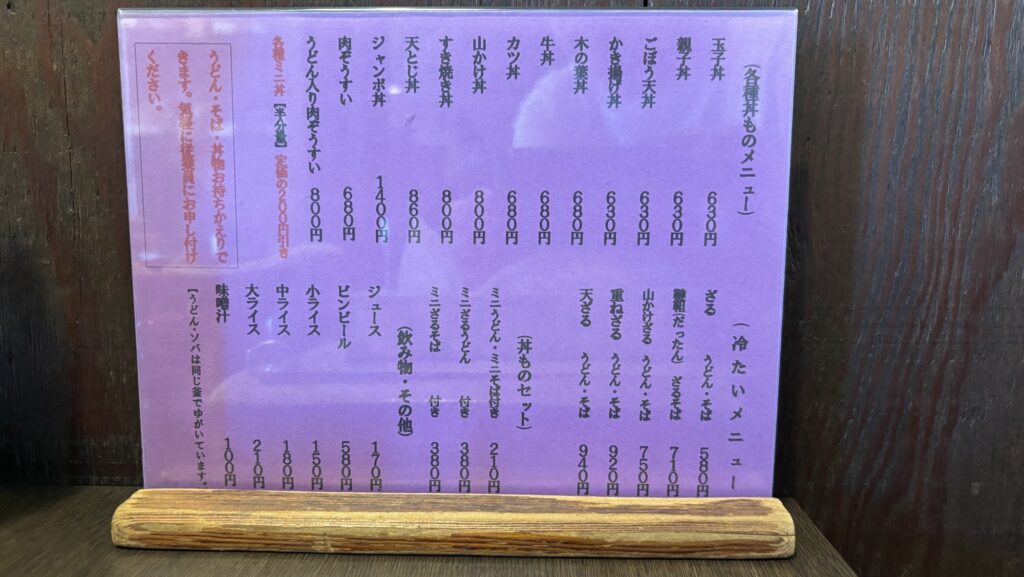 (各種丼ものメニュー)
玉子丼 630円
親子丼 630円
ごぼう天丼 630円
かき揚げ丼 630円
木の葉丼 680円
牛丼 680円
カツ丼 680円
山かけ丼 800円
すき焼き丼 800円
天とじ丼 860円
ジャンボ丼 1400円
肉ぞうすい 680円
うどん入り肉ぞうすい 800円
各種ミニ丼【半分量】定価の200円引き
うどん・そば・丼物お持ちかえりで
きます。気軽に従業員にお申し付け
ください。
(冷たいメニュー
ざる うどん・そば 580円
韃靼(だったん) ざるそば 710円
山かけざる うどん・そば 750円
重ねざる うどん・そば 920円
天ざる うどん・そば 940円
(丼ものセット)
ミニうどん・ミニそば付き 210円
ミニざるうどん 付き 380円
ミニざるそば 付き 380円
(飲み物・その他)
ジュース 170円
ビンビール 580円
小ライス 150円
中ライス 180円
大ライス 210円
味噌汁 100円
【うどん・ソバは同じ釜でゆがいています。